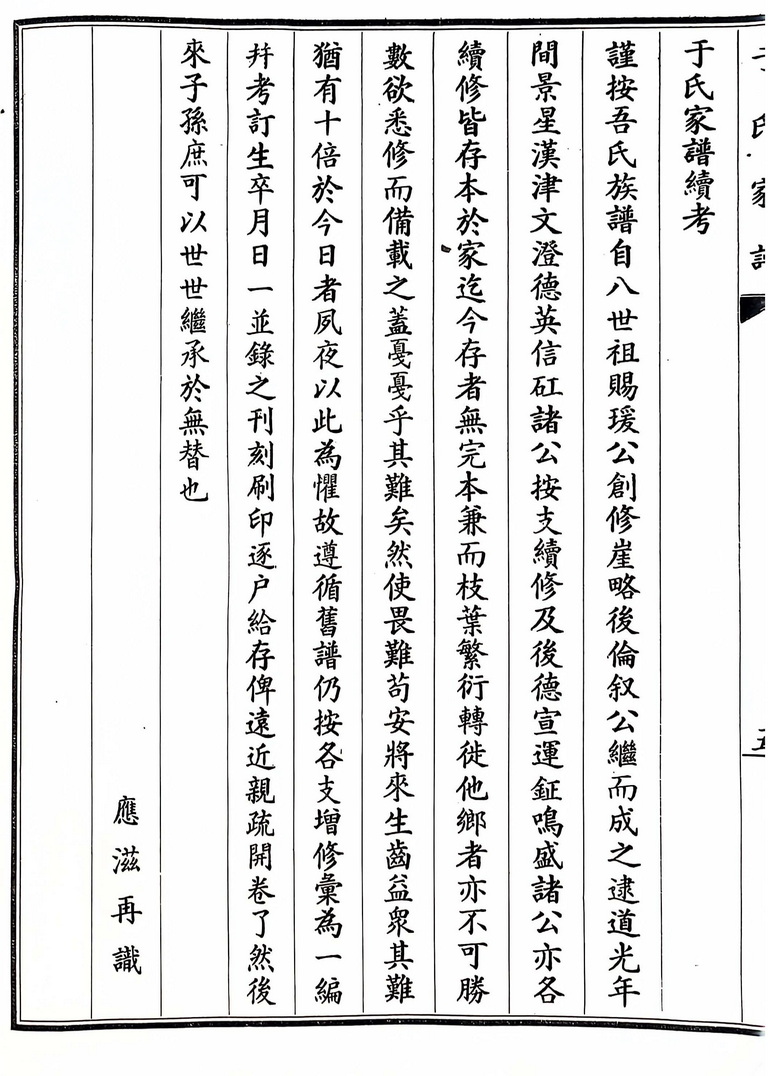 于氏家譜
五
于氏家譜續考
謹按吾氏族譜自八世祖賜瑗公創修崖略後倫叙公繼而成之逮道光年
間景星漢津文澄德英信矼諸公按支續修及後德宣運鉦鳴盛諸公亦各
續修皆存本於家迄今存者無完本兼而枝葉繁衍轉徙他鄉者亦不可勝
數欲悉修而備載之蓋戛戛乎其難矣然使畏難苟安將來生齒益衆其難
猶有十倍於今日者夙夜以此為懼故遵循舊譜仍按各支增修彙為一編
幷考訂生卒月日一並錄之刊刻刷印逐户給存俾遠近親疏開卷了然後
來子孫庶可以世世繼承於無替也
應滋再識